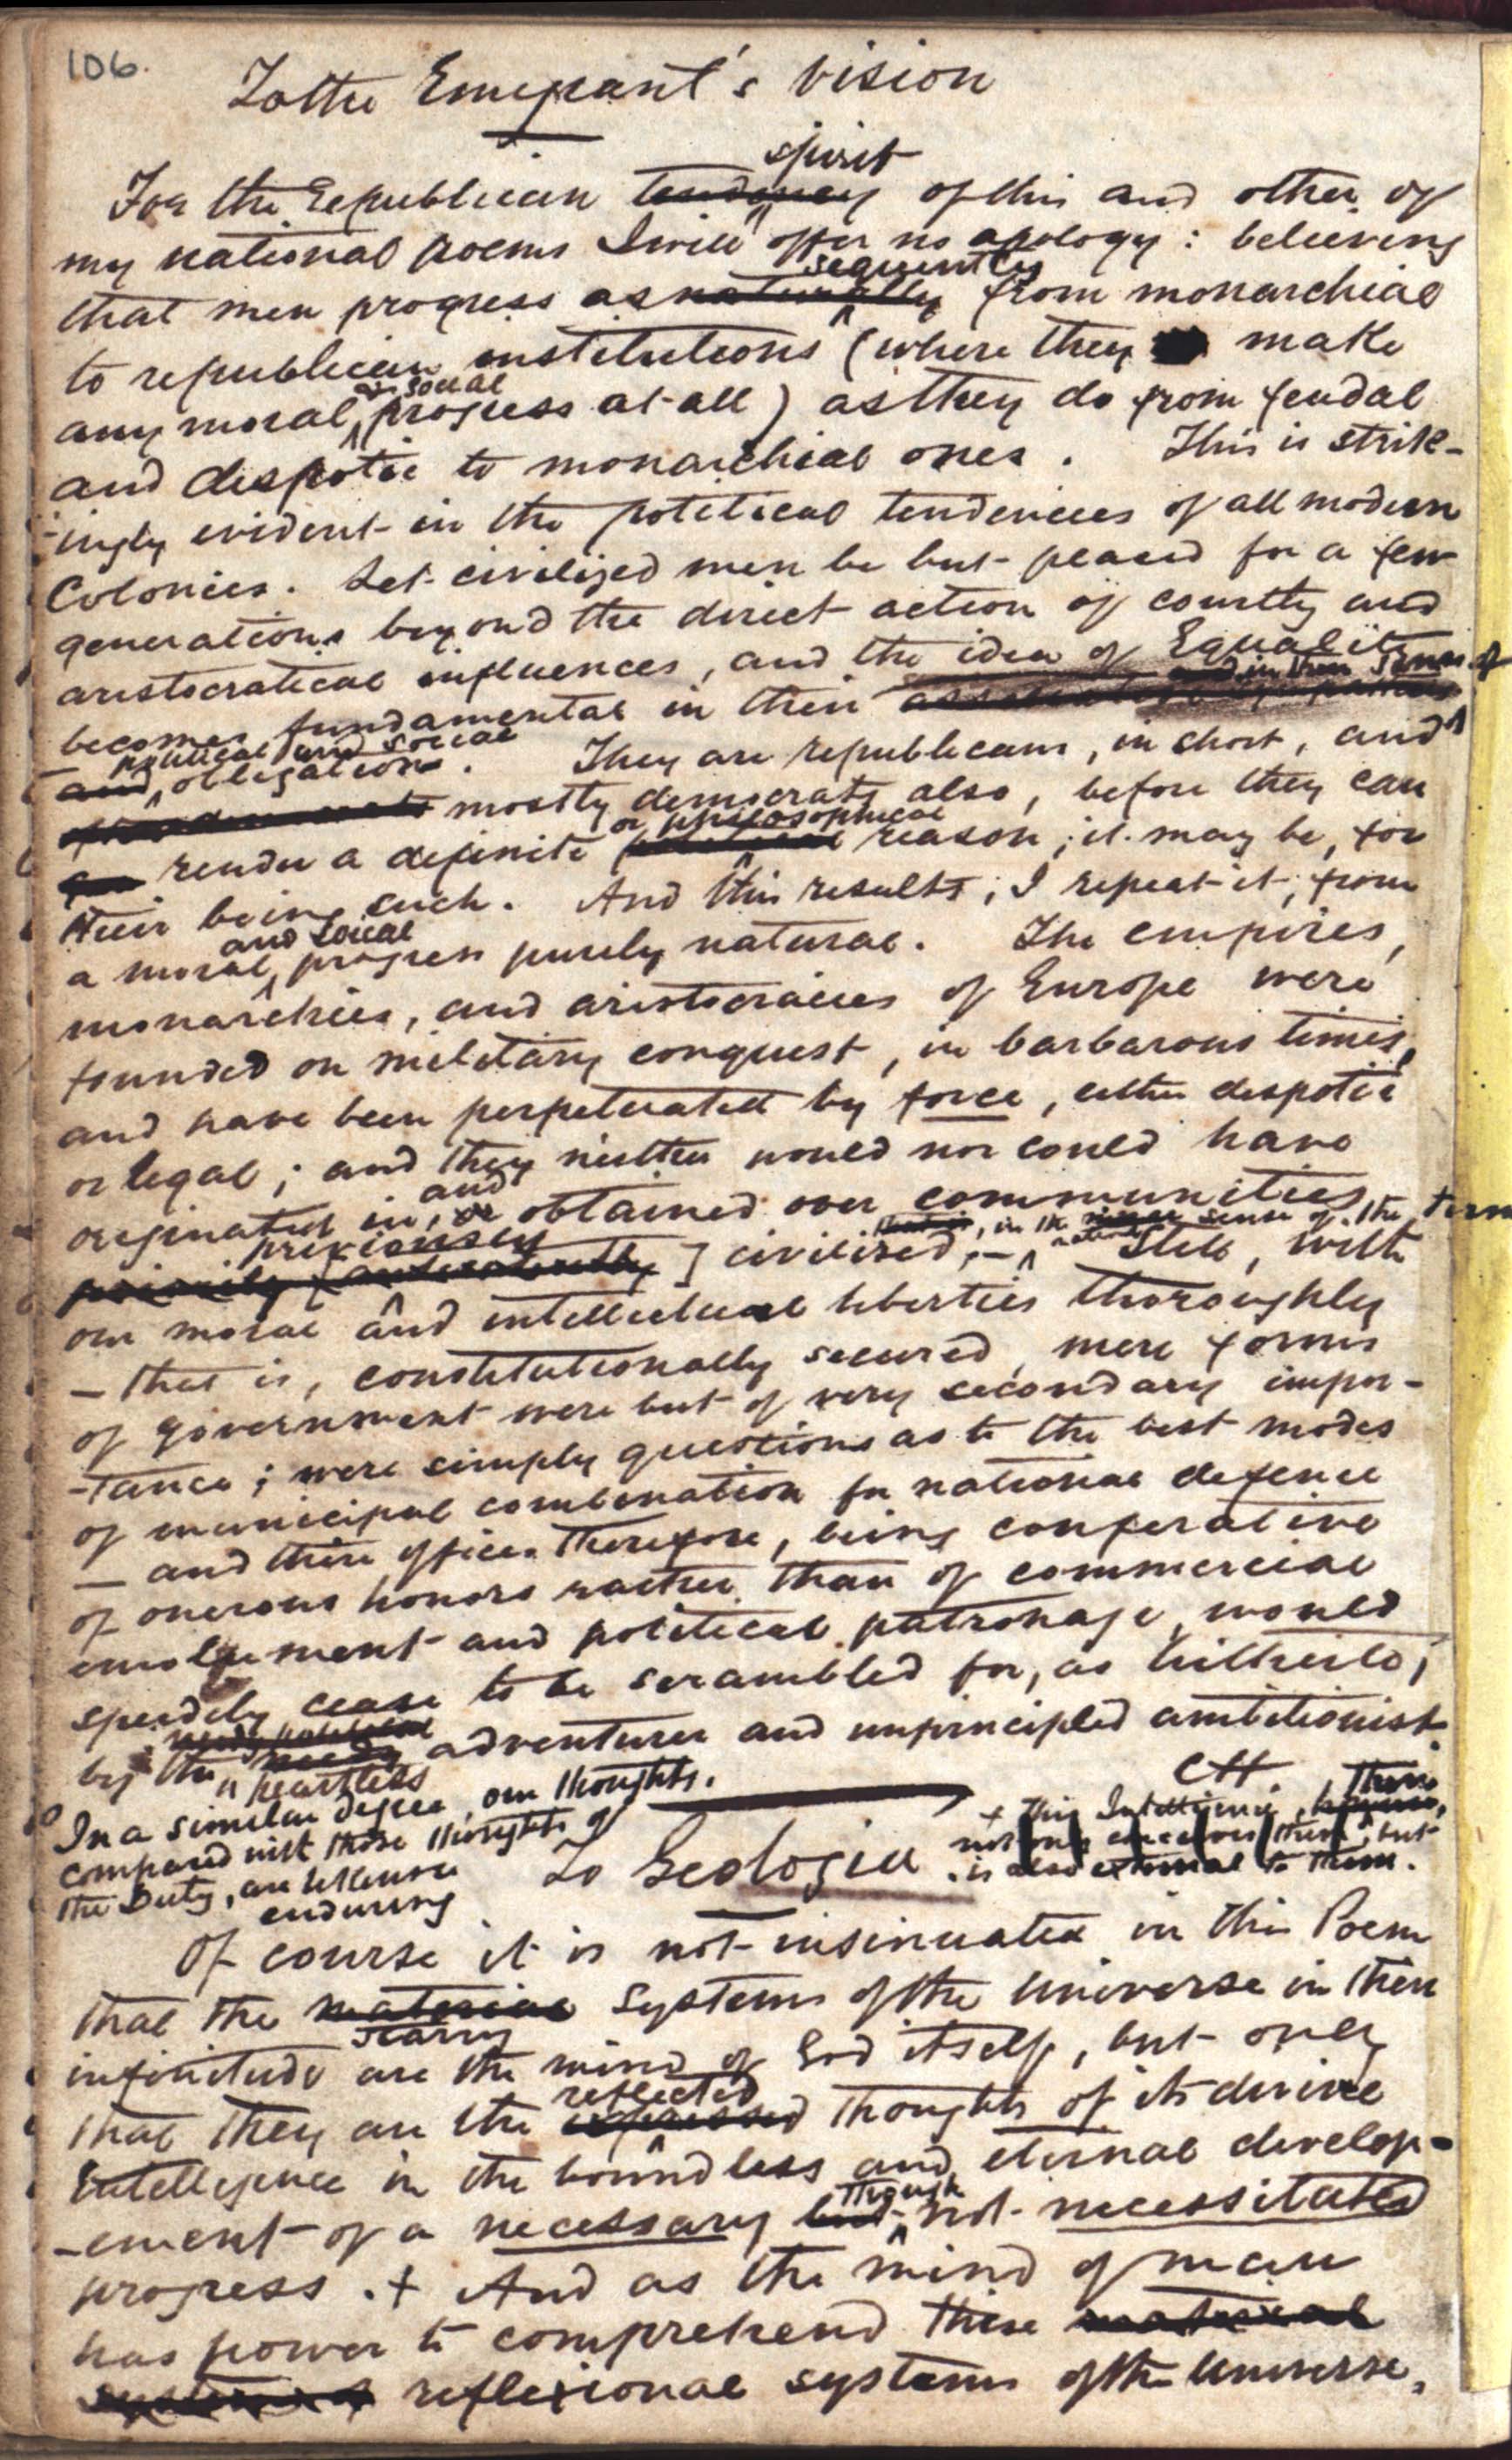 106.
To the Emigrant's Vision
spirit
For the Republican tendency of this and other of
my national poems I will offer no apology: believing
sequently
that men progress as naturally from monarchial
to republican institutions (where they make
& social
any moral progress at all) as they do from feudal
and despotic to monarchial ones. This is strik-
-ingly evident in the political tendencies of all modern
Colonies. Let civilized men be but placed for a few
generations beyond the direct action of courtly and
aristocratical influences, and the idea of Equality
and in their sense of
becomes fundamental in their
political and social
and obligation. They are republicans, in short, and
mostly democrats also, before they can
or philosophical
render a definite political reason, it may be, for
their being such. And this results, I repeat it, from
and social
a moral progress purely natural. The empires,
monarchies, and aristocracies of Europe were
founded on military conquest, in barbarous times,
and have been perpetuated by force, either despotic
or legal; and they neither would nor could have
and
originated in, or obtained over communities
that is, in the sense of the term
previously
primarily [antecedently] civilized,— Still, with
our moral and intellectual liberties thoroughly
— that is, constitutionally secured, mere forms
of government were but of very secondary impor-
-tance; were simply questions as to the best modes
of municipal combination for national defence
— and their offices therefore, being conferative
of onerous honors rather than of commercial
emolument and political patronage, would
speedily cease to be scrambled for, as hitherto,
needy political
by the needy adventurer and unprincipled ambitionist.
heartless
CH.
° In a similar degree, our thoughts,
compared with those thoughts of
the Deity, are
enduring
To Geologia
+ This Intelligence, however,
not only conceives them, but
is also external to them.
Of course it is not insinuated in this Poem
that the material systems of the Universe in their
starry
infinitude are the mind of God itself, but only
reflected
that they are the expressed thoughts of its divine
Intelligence in the boundless and eternal develop-
though
-ement of a necessary but not necessitated
progress.+ And as the mind of man
has power to comprehend these material
systems of reflexional systems of the Universe,